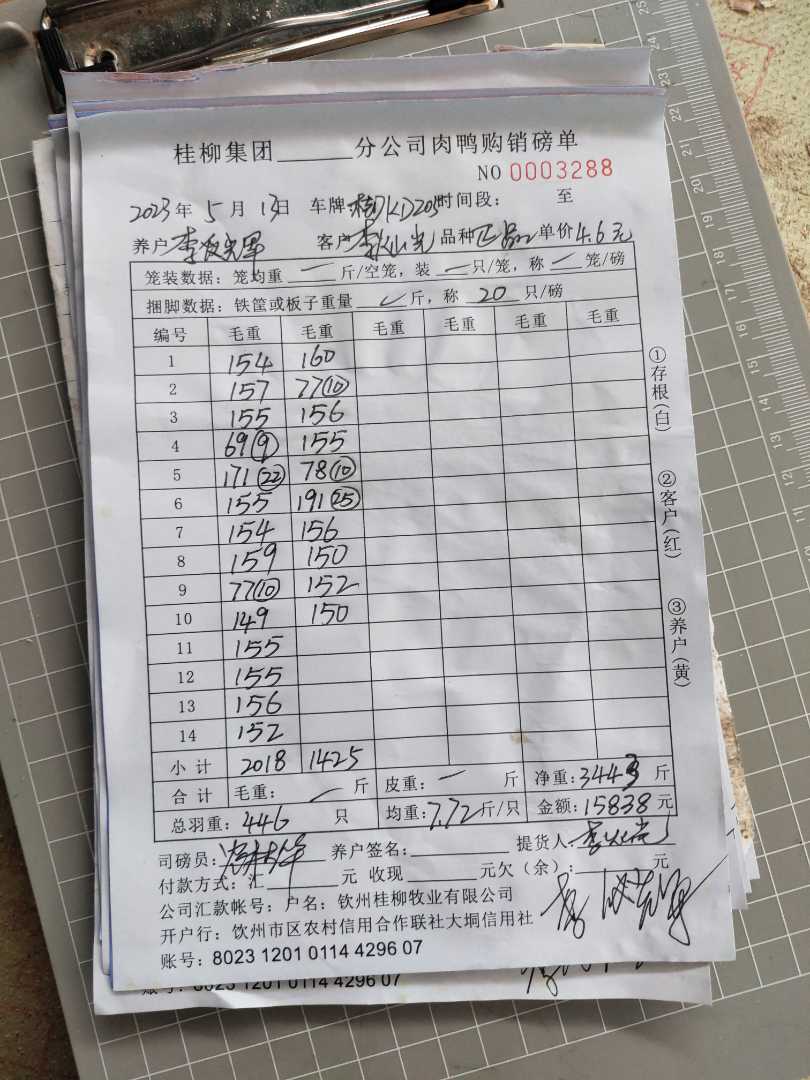 桂柳集团______分公司肉鸭购销磅单
NO 0003288
2023年 5月 13日 车牌 KD205 时间段： 至
养户 李 客户 李 光 品种 正品 单价 4.6元
笼装数据：笼均重 一 斤/空笼，装 一 只/笼，称 一 笼/磅
捆脚数据：铁筐或板子重量 斤，称 20 只/磅
编号 毛重 毛重 毛重 毛重 毛重 毛重
1 154 160
2 157 77(10)
3 155 156
4 69(9) 155
5 171(22) 78(10)
6 155 191(25)
7 154 156
8 159 150
9 77(10) 152
10 149 150
11 155
12 155
13 156
14 152
小计 2018 1425
合计 毛重： 一 斤 皮重： 一 斤 净重：3443 斤
总羽重：446 只 均重：7.72斤/只 金额：15838元
司磅员： 养户签名：______ 提货人
付款方式：汇______元 收现______元欠（余）：______元
公司汇款帐号：户名：钦州桂柳牧业有限公司
开户行：饮州市区农村信用合作联社大垌信用社
账号：8023 1201 0114 4296 07
①存根(白)
②客户(红)
③养户(黄)
账号：8023 1201 0114 4296 07